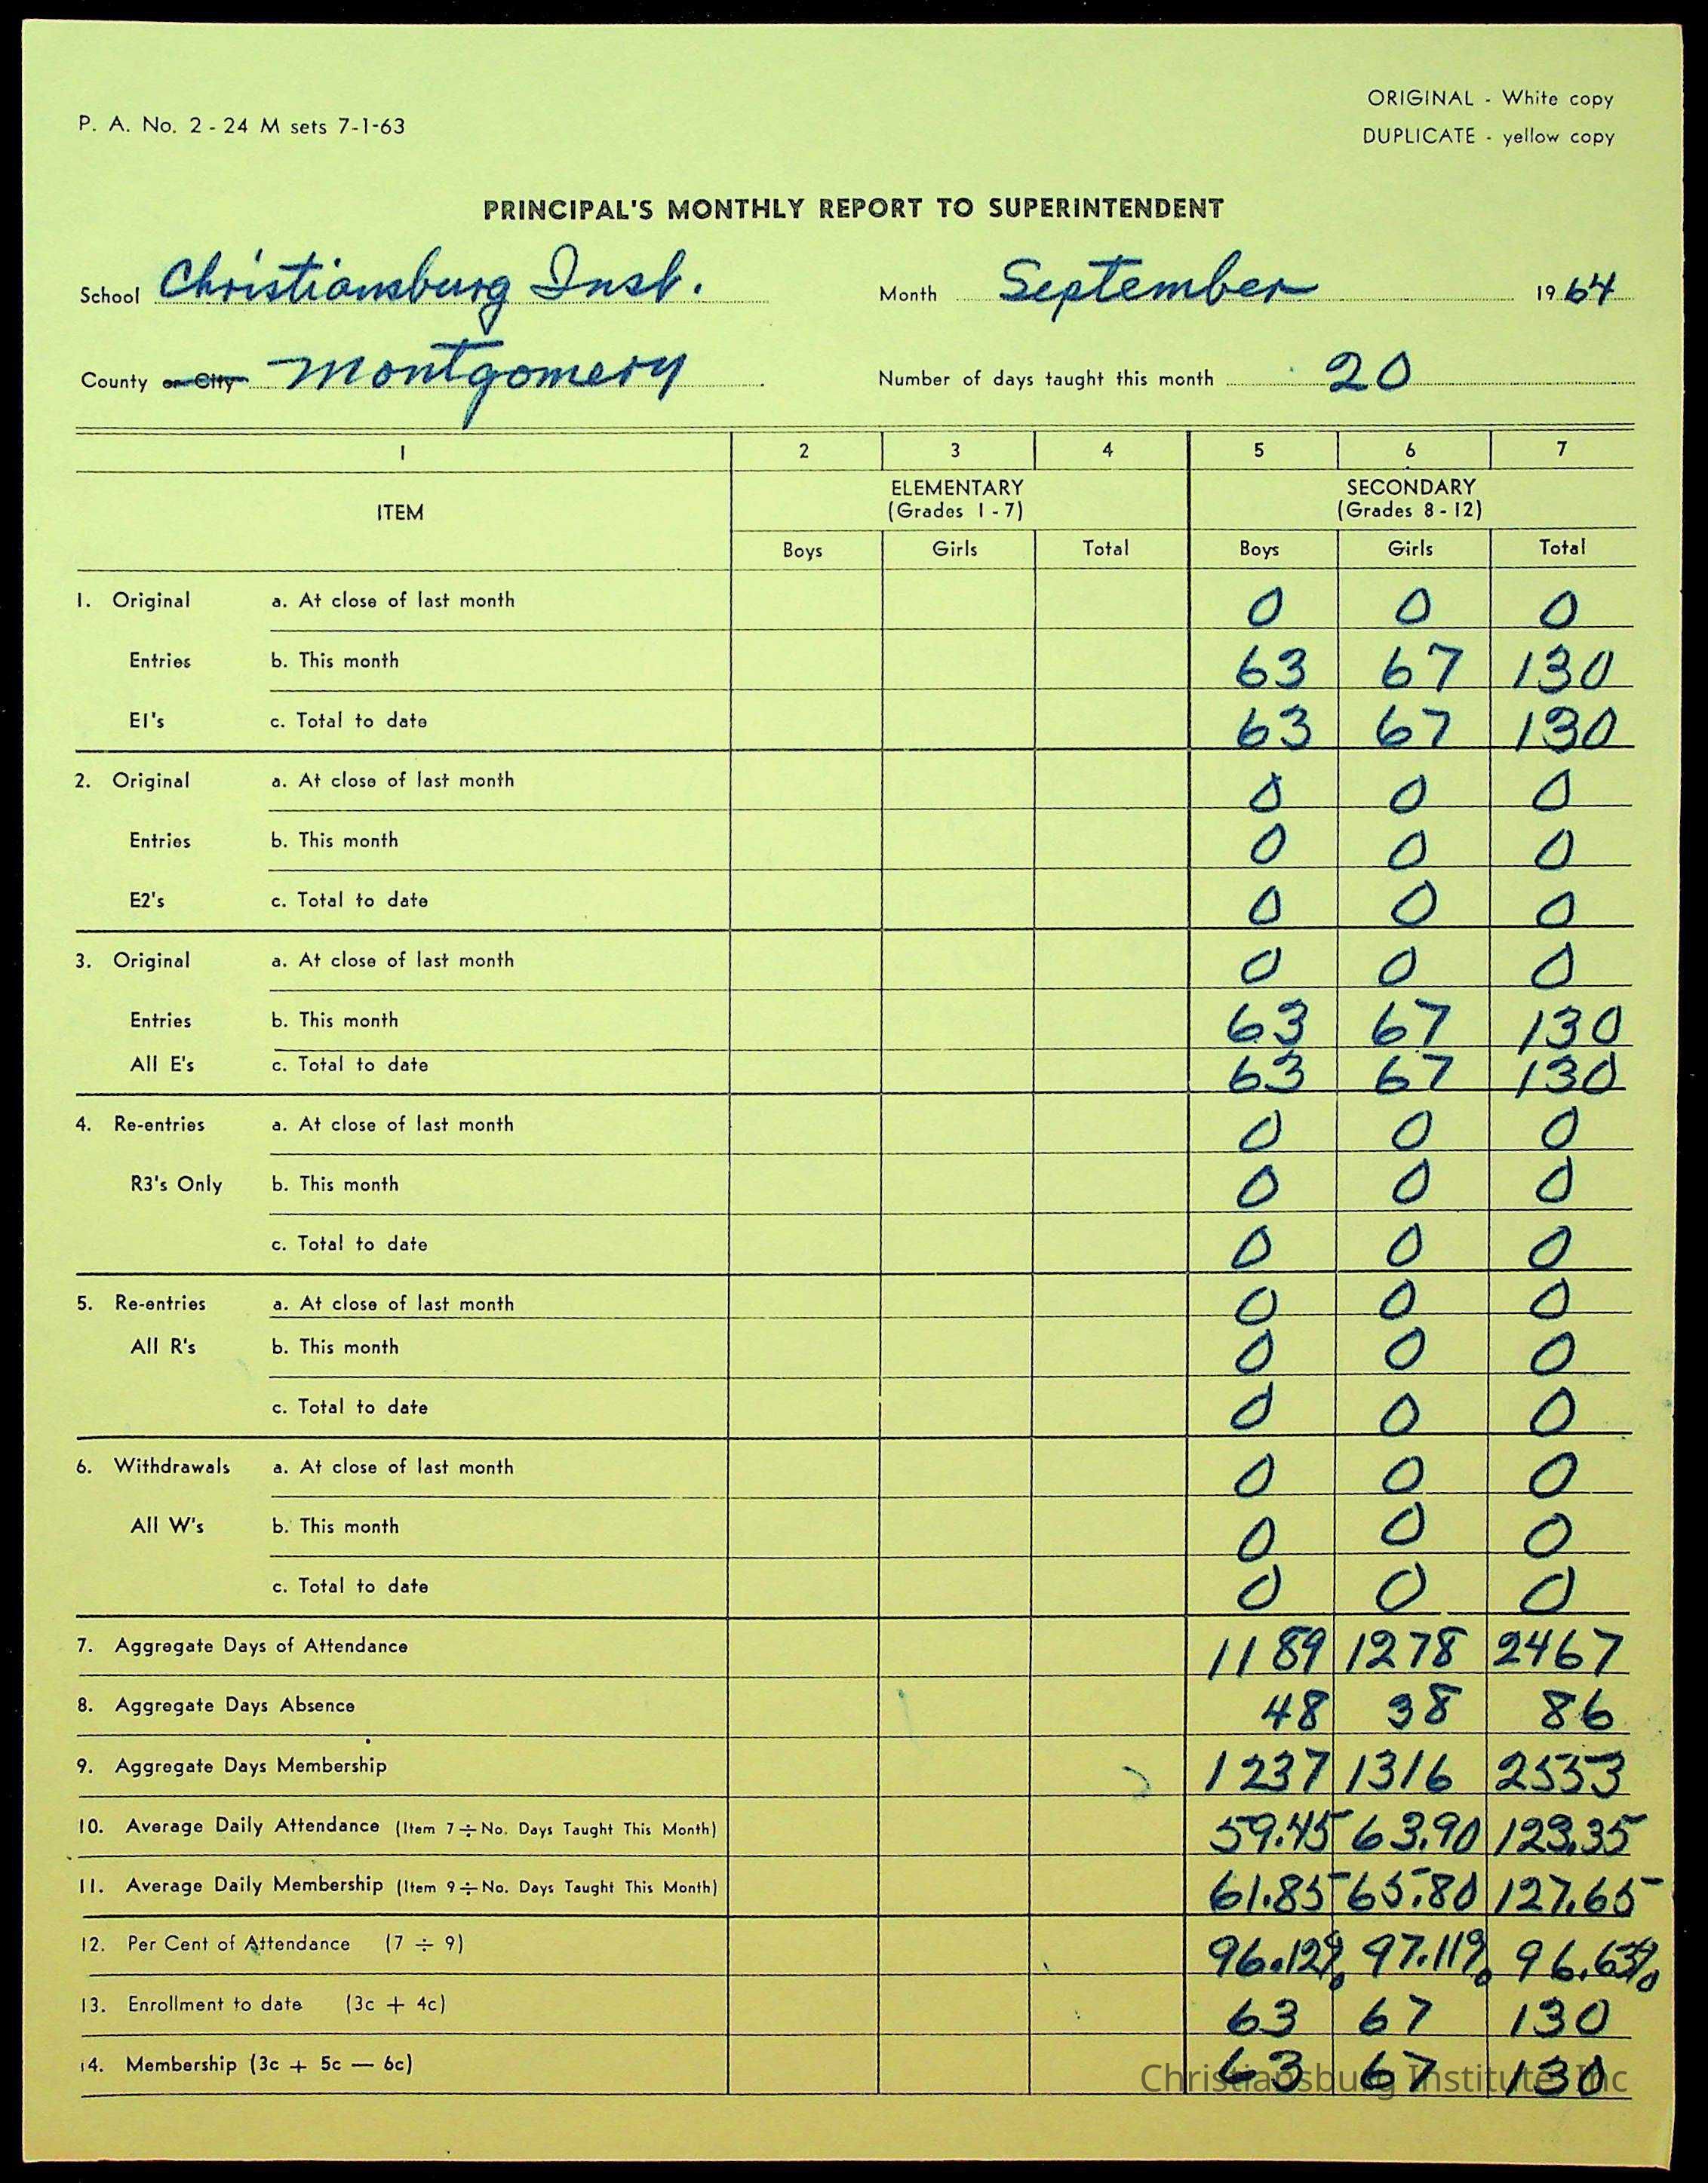 P. A. No. 2 - 24 M sets 7-1-63
ORIGINAL - White copy
DUPLICATE - yellow copy
PRINCIPAL'S MONTHLY REPORT TO SUPERINTENDENT
School Christiansburg Inst. Month September 1964
County or City Montgomery Number of days taught this month 20
1 2 3 4 5 6 7
ITEM ELEMENTARY (Grades 1 - 7) SECONDARY (Grades 8 - 12)
Boys Girls Total Boys Girls Total
1. Original a. At close of last month 0 0 0
Entries b. This month 63 67 130
E1's c. Total to date 63 67 130
2. Original a. At close of last month 0 0 0
Entries b. This month 0 0 0
E2's c. Total to date 0 0 0
3. Original a. At close of last month 0 0 0
Entries b. This month 63 67 130
All E's c. Total to date 63 67 130
4. Re-entries a. At close of last month 0 0 0
R3's Only b. This month 0 0 0
c. Total to date 0 0 0
5. Re-entries a. At close of last month 0 0 0
All R's b. This month 0 0 0
c. Total to date 0 0 0
6. Withdrawals a. At close of last month 0 0 0
All W's b. This month 0 0 0
c. Total to date 0 0 0
7. Aggregate Days of Attendance 1189 1278 2467
8. Aggregate Days Absence 48 38 86
9. Aggregate Days Membership 1237 1316 2553
10. Average Daily Attendance (Item 7 ÷ No. Days Taught This Month) 59.45 63.90 123.35
11. Average Daily Membership (Item 9 ÷ No. Days Taught This Month) 61.85 65.80 127.65
12. Per Cent of Attendance (7 ÷ 9) 96.12% 97.11% 96.63%
13. Enrollment to date (3c + 4c) 63 67 130
14. Membership (3c + 5c — 6c) 63 67 130
Christiansburg Institute, Inc